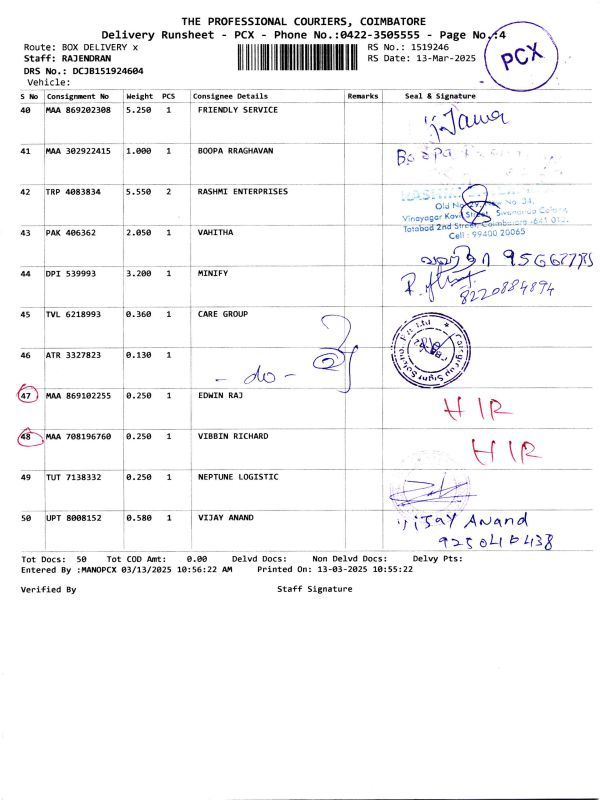 THE PROFESSIONAL COURIERS, COIMBATORE
Delivery Runsheet - PCX - Phone No.:0422-3505555 - Page No.:4
Route: BOX DELIVERY x RS No.: 1519246
Staff: RAJENDRAN RS Date: 13-Mar-2025
DRS No.: DCJB151924604
Vehicle:
PCX
S No Consignment No Weight PCS Consignee Details Remarks Seal & Signature
40 MAA 869202308 5.250 1 FRIENDLY SERVICE
41 MAA 302922415 1.000 1 BOOPA RRAGHAVAN
42 TRP 4083834 5.550 2 RASHMI ENTERPRISES
RASHMI
Old No. 29, New No. 34,
Vinayagar Kovil Street, Swananda Colony,
Tatabad 2nd Street, Coimbatore -641 012.
Cell : 99400 20065
43 PAK 406362 2.050 1 VAHITHA
44 DPI 539993 3.200 1 MINIFY 8220884894
45 TVL 6218993 0.360 1 CARE GROUP
46 ATR 3327823 0.130 1 - do -
47 MAA 869102255 0.250 1 EDWIN RAJ HIR
48 MAA 708196760 0.250 1 VIBBIN RICHARD HIR
49 TUT 7138332 0.250 1 NEPTUNE LOGISTIC
50 UPT 8008152 0.580 1 VIJAY ANAND Vijay Anand
Tot Docs: 50 Tot COD Amt: 0.00 Delvd Docs: Non Delvd Docs: Delvy Pts:
Entered By :MANOPCX 03/13/2025 10:56:22 AM Printed On: 13-03-2025 10:55:22
Verified By Staff Signature